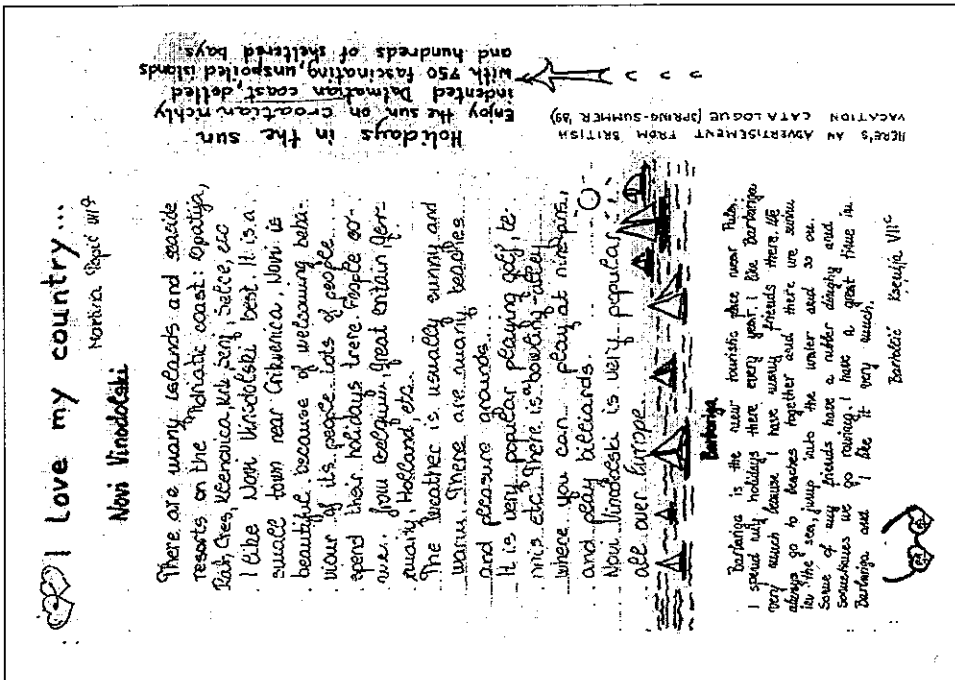 I Love my country...
Martina
Novi Vinodolski
There are many islands and seaside
resorts on the Adriatic coast: Opatija,
Rab, Cres, Crikvenica, Krk, Senj, Selce, etc
I like Novi Vinodolski best. It is a
small town near Crikvenica. Novi is
beautiful because of welcoming beha-
viour of its people. Lots of people
spend their holidays there. People co-
me from Belgium, Great Britain, Ger-
many, Holland, etc.
The weather is usually sunny and
warm. There are many beaches
and pleasure grounds.
It is very popular playing golf, te-
nnis etc. There is a bowling-alley
where you can play at ninepins,
and play billiards.
Novi Vinodolski is very popular
all over Europe.
Barbariga
Barbariga is the new touristic place near Pula.
I spend my holidays there every year. I like Barbariga
very much because I have many friends there. We
always go to beaches together and there we swim
in the sea, jump into the water and so on.
Some of my friends have a rubber dinghy and
sometimes we go rowing. I have a great time in
Barbariga and I like it very much.
Ksenija VIIc
Holidays in the sun
Enjoy the sun on Croatian richly
indented Dalmatian coast, dotted
with 750 fascinating, unspoiled islands
and hundreds of sheltered bays
HERE'S AN ADVERTISEMENT FROM BRITISH
VACATION CATALOGUE (SPRING-SUMMER '89)